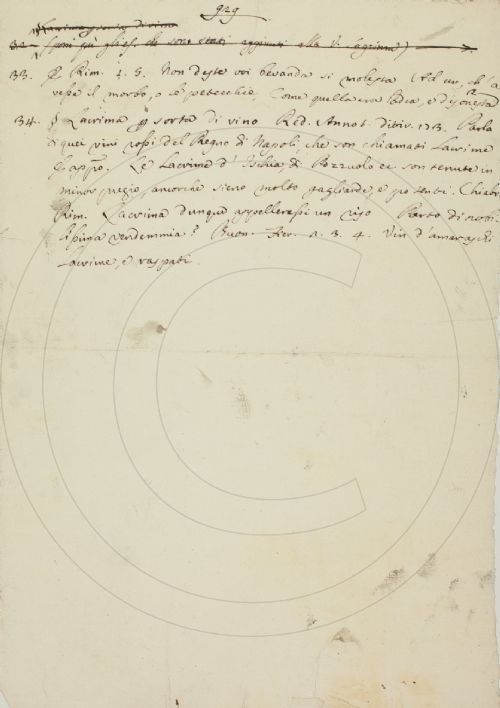 929
Lacrima p sorta di vino
32. (poni quì gli es. che sono stati aggiunti alla V. Lagrima)
33. Rim. 1. 5. Non deste voi bevanda sì molesta Ad un, ch' a
vesse il morbo, o le petecchie, Come quella era ladra, e disonesta
34. § Lacrima p sorta di vino Red. Annot. ditir. 173. Parla
di quei vini rossi del Regno di Napoli, che son chiamati Lacrime
Le Lacrime d' Ischia di Pozzuolo ec. son tenute in
minor pregio, ancorchè sieno molto gagliarde, e potenti. Chiabr.
Rim. Lacrima dunque appellerassi un riso Parto di nobi-
lissima vendemmia? Buon. Fier. a. 3. 4. Vin d'amaraschi
Lacrime, e raspati.